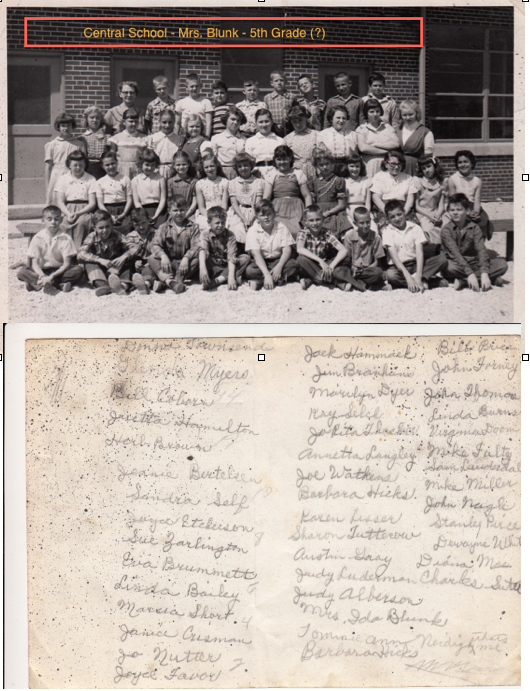 Central School - Mrs. Blunk - 5th Grade (?)
Donna Townsend
Myers
Bill
Jaretta Hamilton
Herb Brown
Jeanie Bertelsen
Sandra Self
Joyce Etcheson
Sue Zarlington
Eva Brummett
Linda Bailey
Marsha Short
Janice Crisman
Jo Nutter
Joyce Favor
Jack Hammack
Jim Branham
Marilyn Dyer
Ray
JoRita
Annetta Langley
Joe Watkins
Barbara Hicks
Karen Lisser
Sharon Tutterow
Austin Gray
Judy Luderman
Judy Alberson
Mrs. Ida Blunk
Tommie Ann Neidig
Barbara Hicks
Bill
John Forney
John Thomas
Linda Burns
Virginia
Mike
Sam
Mike Miller
John Nagle
Stanley Pierce
Dewayne Whit
Diana Mae
Charles
that's
me